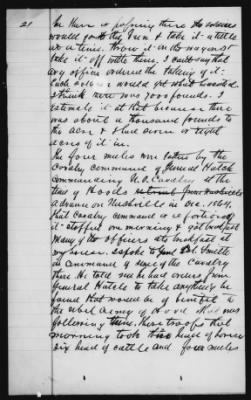 21
In Mar. in passing there the soldiers
would go to the barn & take it - a little
at a time. Know it in the way
take it off with them. I can't say that
any officer ordered the taking of it.
Each soldier would get what he wanted.
I think there was 7000 pounds. I
estimate it at that because there
was about a thousand pounds to
the acre & I had seven or eight
acres of it in.
The four mules were taken by the
Cavalry command of General Hatch
commanding U.S. Cavalry at the
time of Hoods
advance on Nashville in Dec. 1864.
That Cavalry command as it
it - stopped one morning & got breakfast
Many of the officers ate breakfast at
my house. I spoke to
in command of some of the cavalry
there. He told me he had orders from
General Hatch to take anything he
found that would be of benefit to
the rebel Army of Hood that was
following. These troops that
morning took head of horses
six head of cattle and four mules